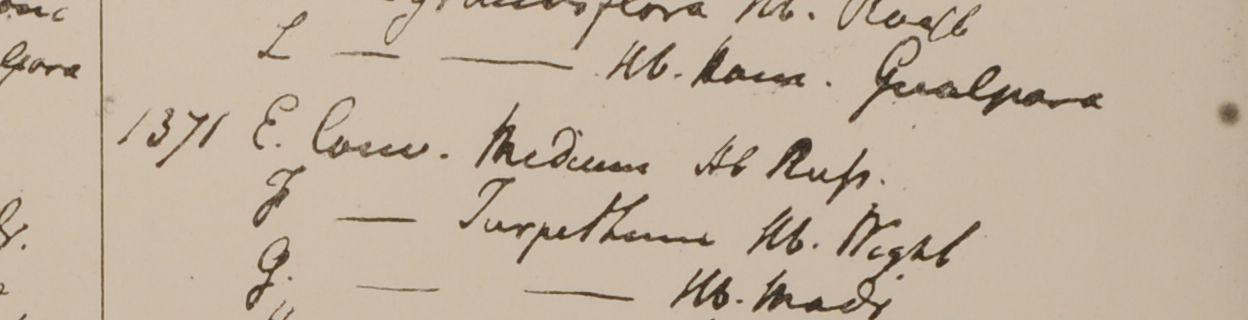 grandiflora Hb. Roxb
L — — Hb. Ham. Gualpara
lpara
1371 E. Conv. Medium Hb Russ.
F — Turpethum Hb. Wight
G. — — Hb. Madr